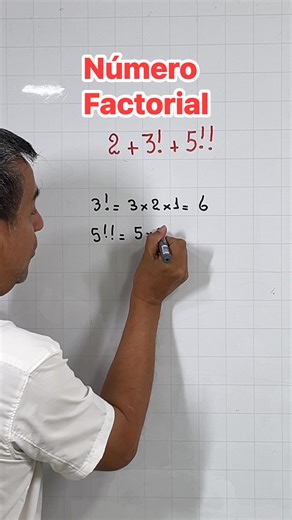 Número
Factorial
2 + 3! + 5!!
3! = 3 x 2 x 1 = 6
5!! = 5 x